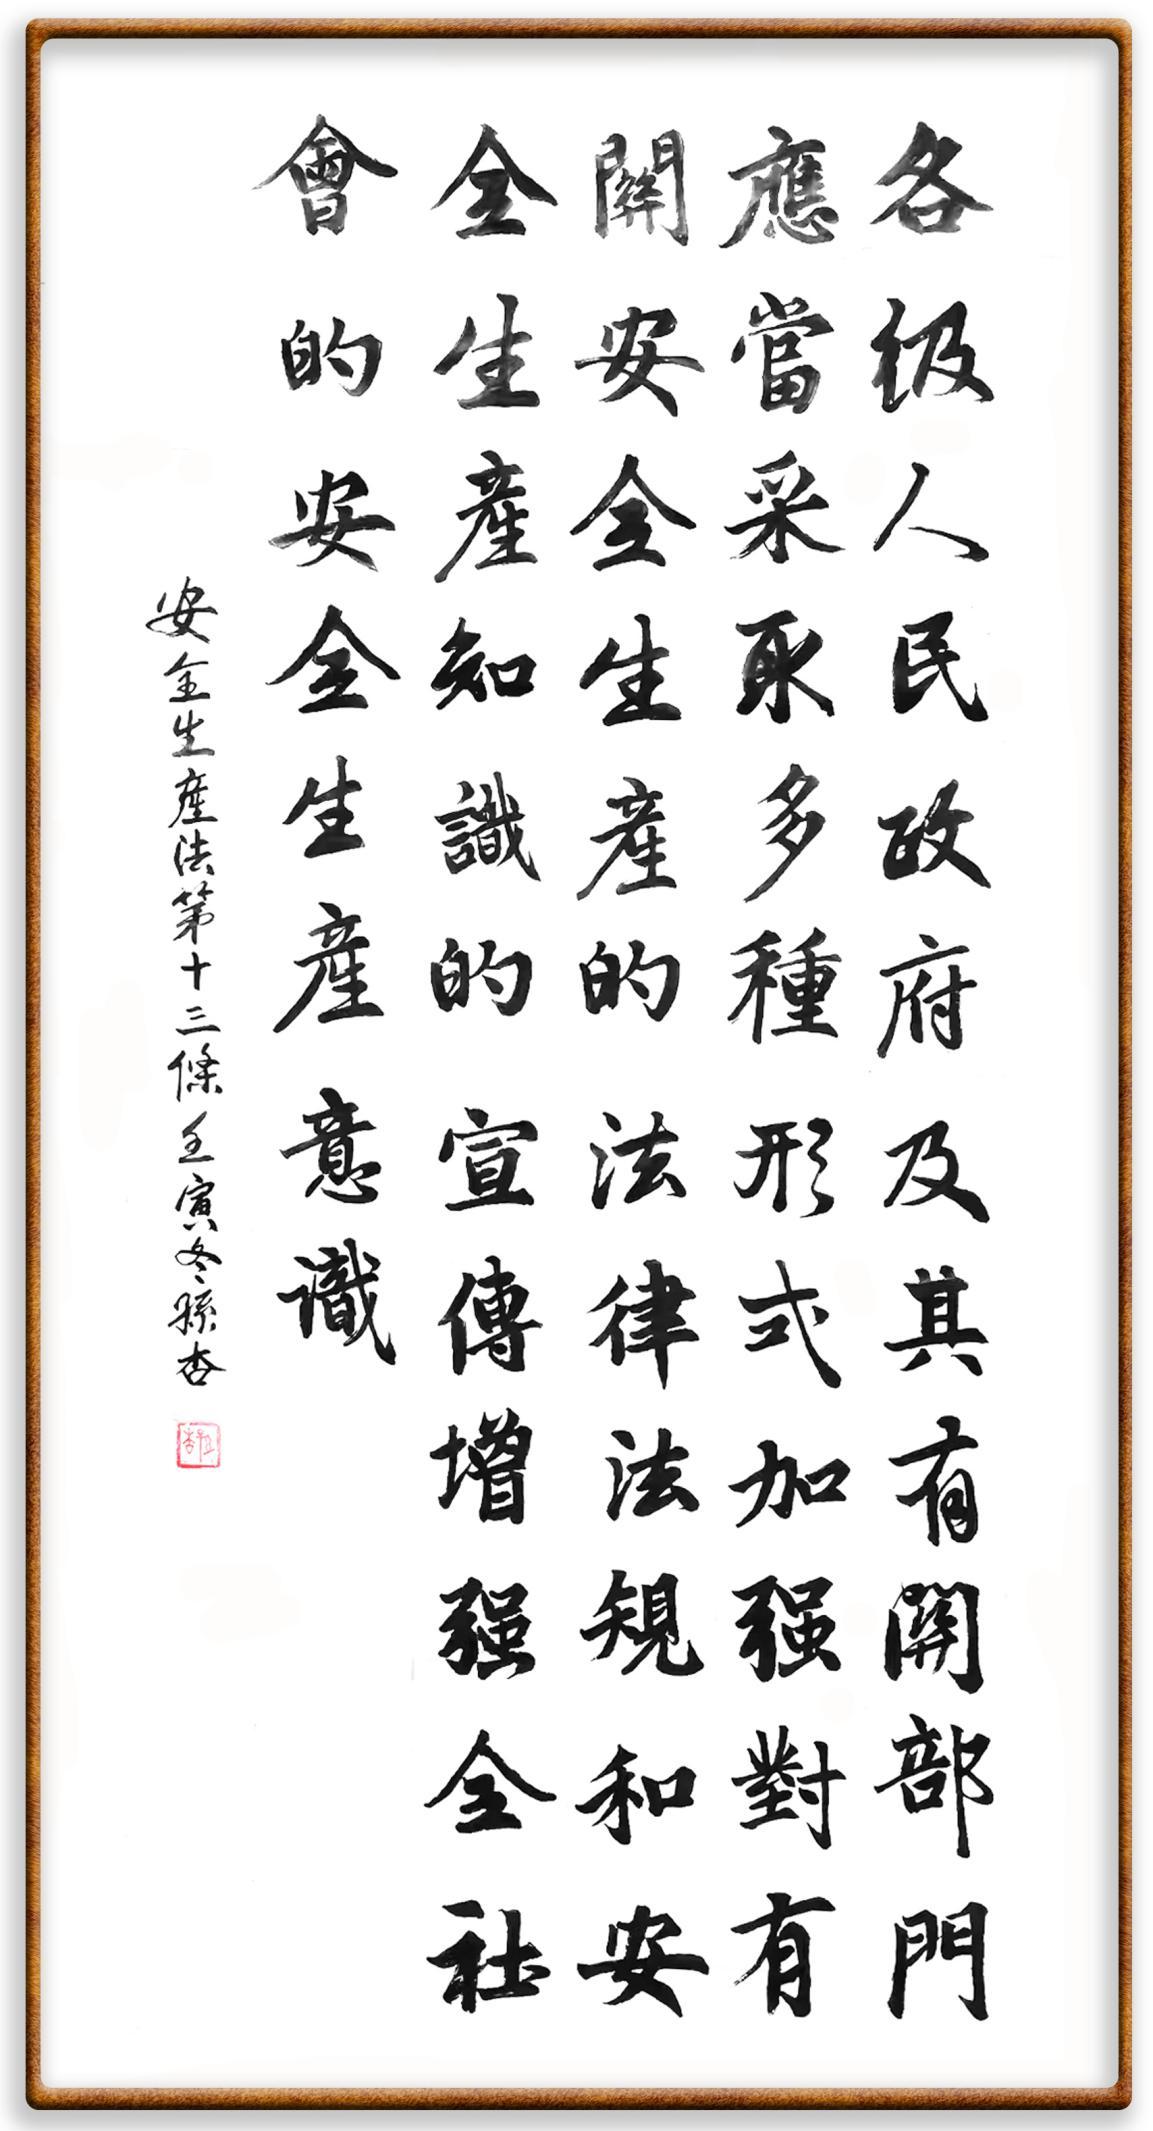 各級人民政府及其有關部門
應當采取多種形式加强對有
關安全生產的法律法規和安
全生產知識的宣傳增强全社
會的安全生產意識
安全生產法第十三條壬寅冬孫杏